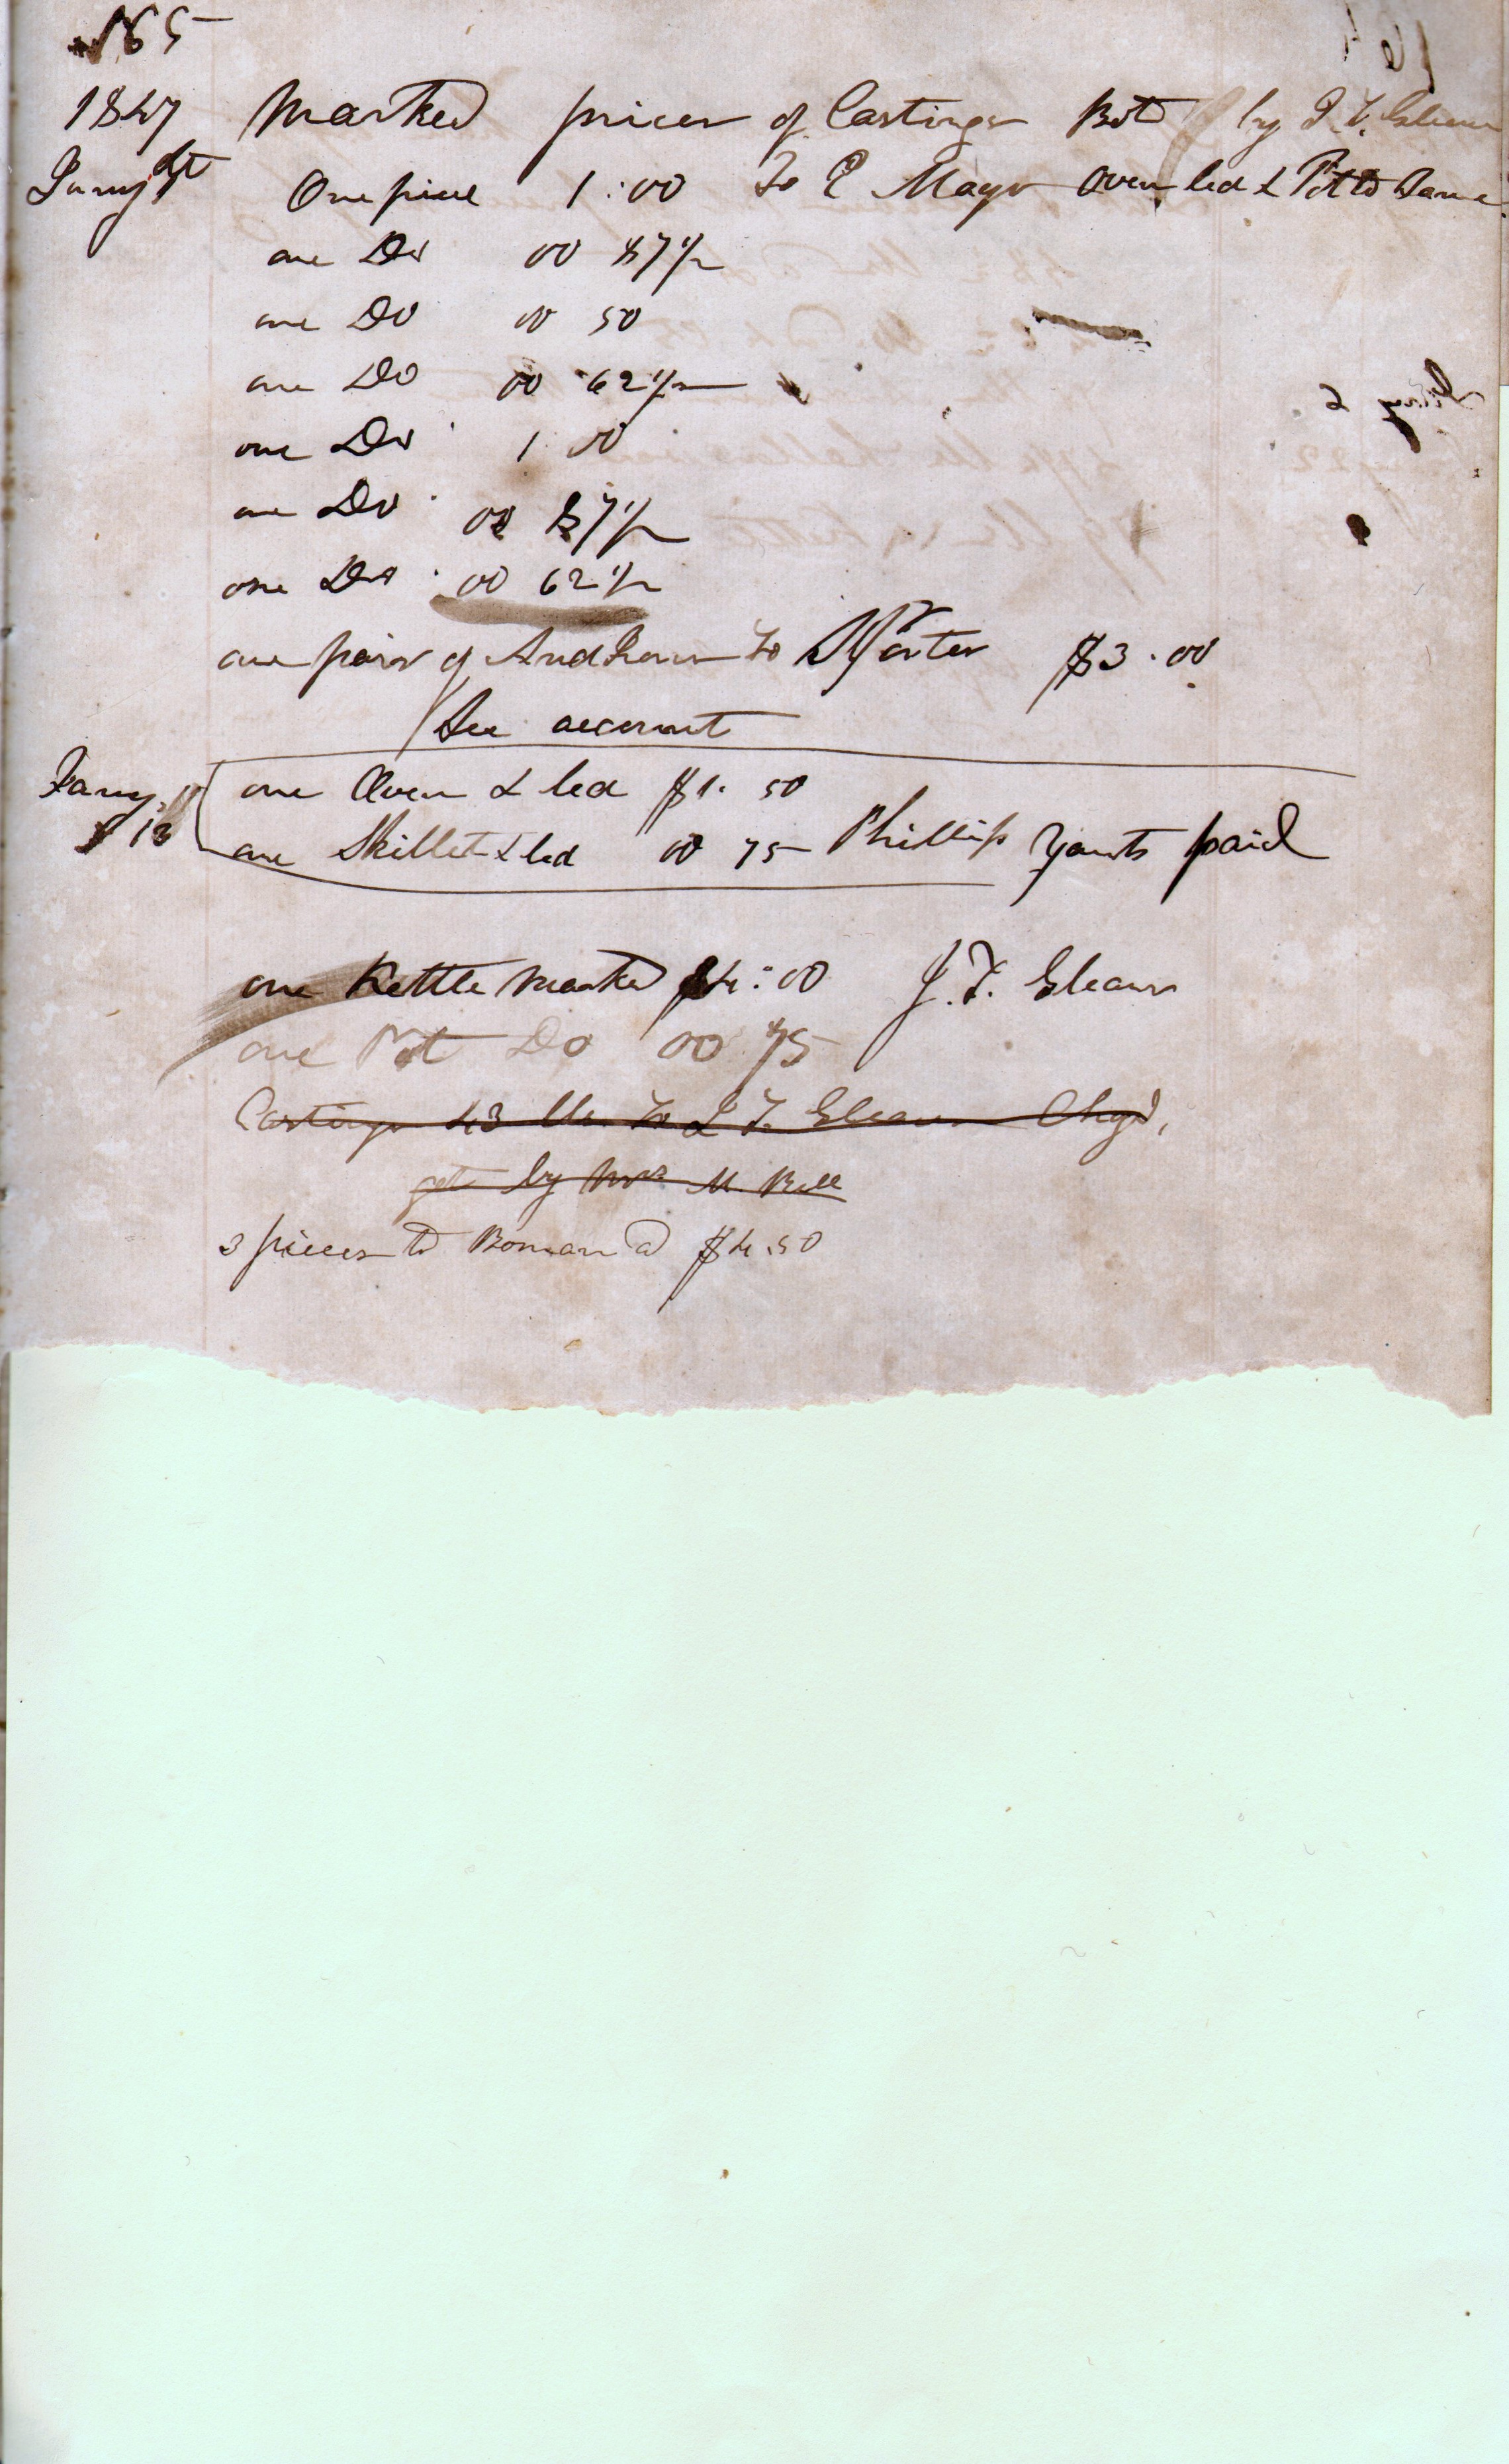 165
1847 Marked prices of Castings Bot by J. F. Gleaves
Jany 1st One piece 1:00 To E Mayo oven led & Pot to Same
one Do 00 87 1/2
one Do 00 50
one Do 00 62 1/2
one Do 1 00
one Do 00 87 1/2
one Do 00 62 1/2
one pair of And Irons to Porter $3.00
See account
Jany one Oven & led $1. 50
13 one Skillet & led 00 75 Phillip Yants paid
one Kettle marked $4:00 J. F. Gleaves
one Pot Do 00 75
Castings 43 lbs. To J. F. Gleaves Chgd,
got by Mrs M. Bell
3 pieces to Boman @ $4.50